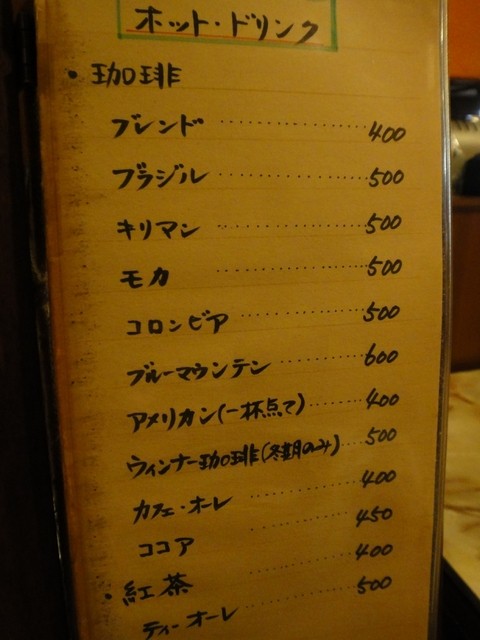 ホット・ドリンク
・珈琲
ブレンド ……………… 400
ブラジル ……………… 500
キリマン ……………… 500
モカ ……………… 500
コロンビア ……………… 500
ブルーマウンテン ………… 600
アメリカン(一杯点て) ……… 400
ウィンナー珈琲(冬期のみ) …… 500
カフェ・オーレ ………… 400
ココア ………… 450
・紅茶 ………… 400
ティーオーレ ………… 500